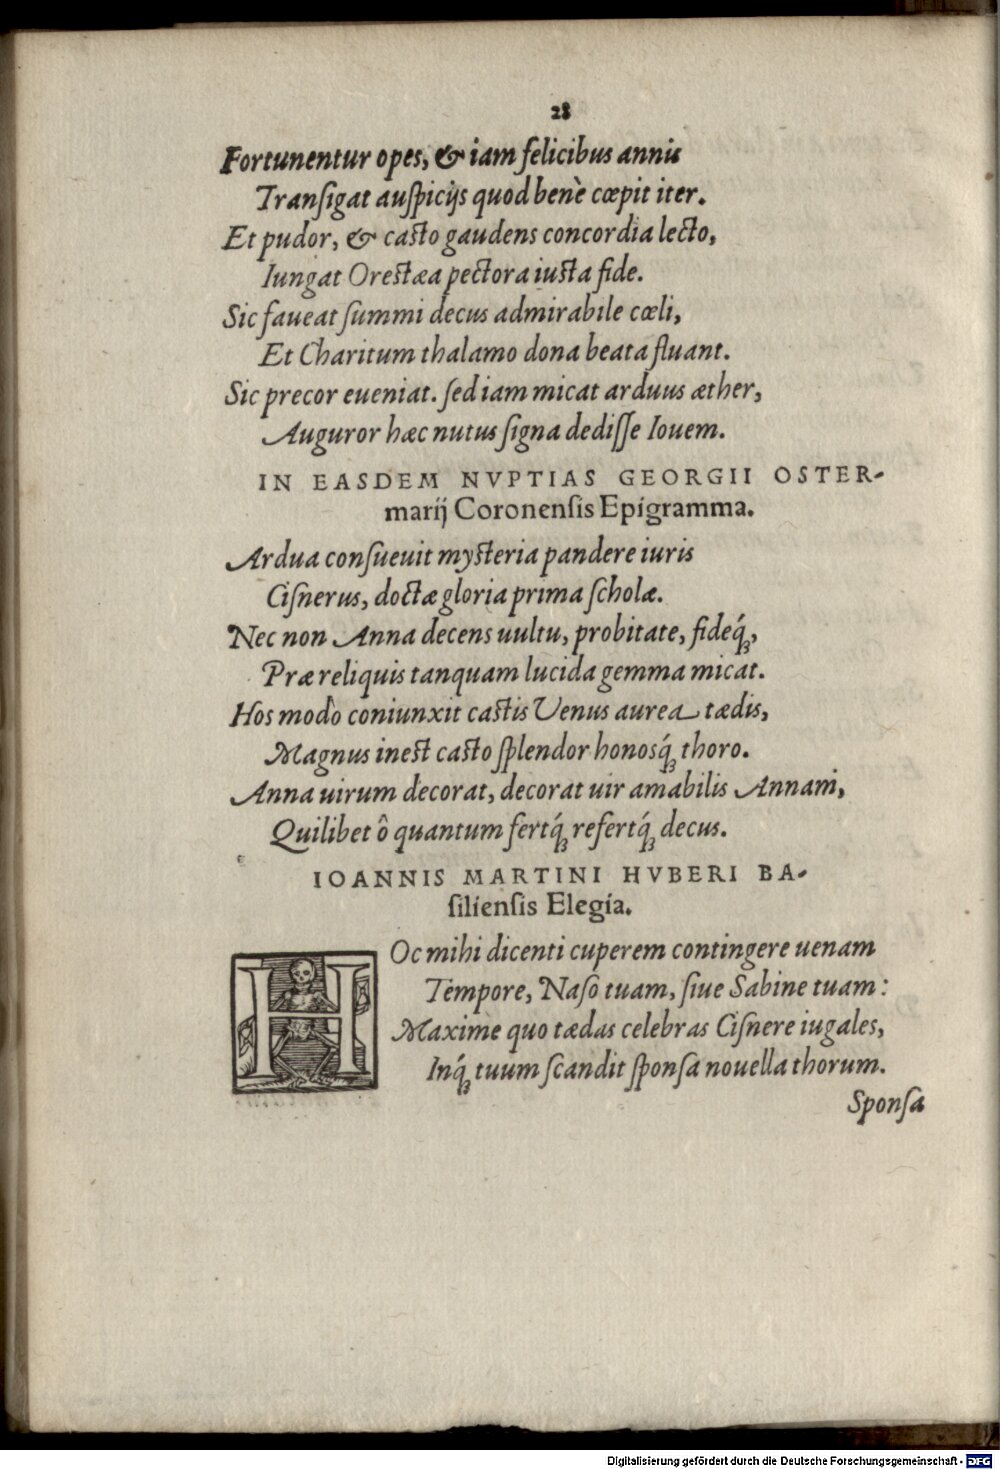 28
Fortunentur opes, & iam felicibus annis
Tranſigat auſpicijs quod benè cœpit iter.
Et pudor, & caſto gaudens concordia lecto,
Iungat Oreſtæa pectora iuſta fide.
Sic faueat ſummi decus admirabile cœli,
Et Charitum thalamo dona beata fluant.
Sic precor eueniat. ſed iam micat arduus æther,
Auguror hæc nutus ſigna dediſſe Iouem.
IN EASDEM NVPTIAS GEORGII OSTER-
marij Coronenſis Epigramma.
Ardua conſueuit myſteria pandere iuris
Ciſnerus, doctæ gloria prima ſcholæ.
Nec non Anna decens uultu, probitate, fideq́;,
Præ reliquis tanquam lucida gemma micat.
Hos modò coniunxit caſtis Venus aurea tædis,
Magnus ineſt caſto ſplendor honosq́; thoro.
Anna uirum decorat, decorat uir amabilis Annam,
Quilibet ô quantum fertq́; refertq́; decus.
IOANNIS MARTINI HVBERI BA-
ſilienſis Elegia.
HOc mihi dicenti cuperem contingere uenam
Tempore, Naſo tuam, ſiue Sabine tuam:
Maxime quo tædas celebras Ciſnere iugales,
Inq́; tuum ſcandit ſponſa nouella thorum.
Sponſa
Digitalisierung gefördert durch die Deutsche Forschungsgemeinschaft - DFG